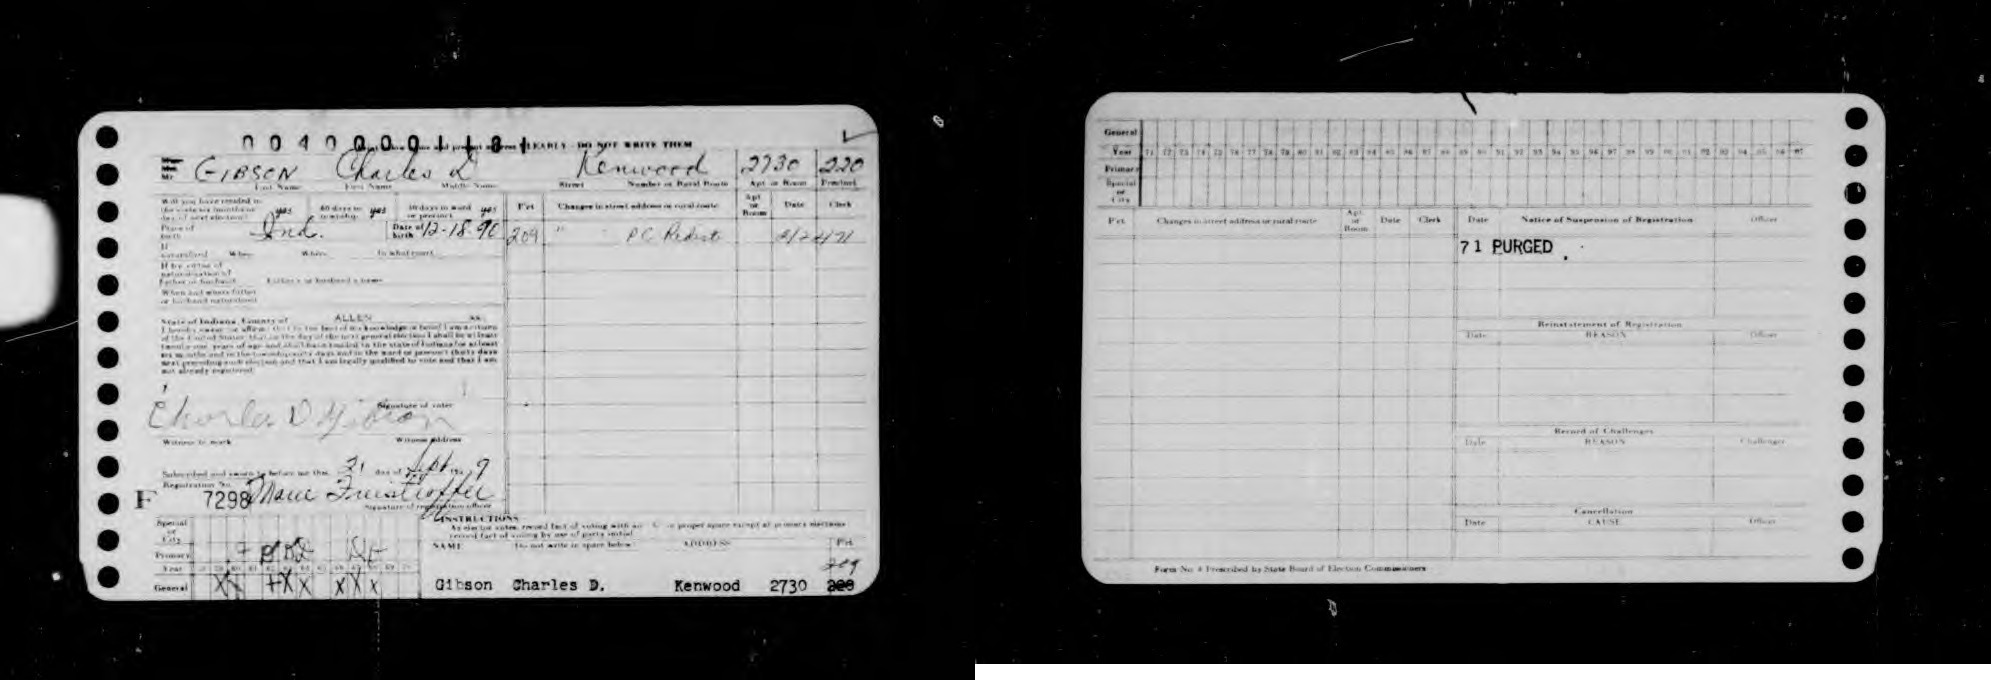 0040000118
EARLY - DO NOT WRITE THEM
Mr GIBSON Charles D Kenwood 2730 220
Last Name First Name Middle Name Street Number or Rural Route Apt or Room Precinct
Will you have resided in the state six months on day of next election? yes 60 days in township yes 30 days in ward or precinct yes
Pct Changes in street address or rural route Apt or Room Date Clerk
Place of birth Ind. Date of birth 12-18-90
209 P.C. Redist
If naturalized When Where In what court
If by virtue of naturalization of father or husband Father's or husband's name
When and where father or husband naturalized
State of Indiana, County of ALLEN ss.
I hereby swear or affirm that to the best of my knowledge or belief I am a citizen
of the United States, that on the day of the next general election I shall be at least
twenty-one years of age and shall have resided in the state of Indiana for at least
six months and in the township sixty days and in the ward or precinct thirty days
next preceding such election and that I am legally qualified to vote and that I am
not already registered.
Charles D Gibson
Signature of voter
Witness to mark Witness address
Subscribed and sworn to before me this 21 day of Sept 19 9
Registration No.
F 7298 Marie
Signature of registration officer
INSTRUCTIONS
As elector votes, record fact of voting with an X in proper space except at primary elections
record fact of voting by use of party initial
NAME Do not write in space below ADDRESS Pct
Special or City
Primary
Year
General
209
Gibson Charles D. Kenwood 2730 220
General
Year 71 72 73 74 75 76 77 78 79 80 81 82 83 84 85 86 87 88 89
Primary
Special or City
Pct Changes in street address or rural route Apt or Room Date Clerk Date Notice of Suspension of Registration Officer
71 PURGED
Reinstatement of Registration
Date REASON Officer
Record of Challenges
Date REASON Challenger
Cancellation
Date CAUSE Officer
Form No. 4 Prescribed by State Board of Election Commissioners